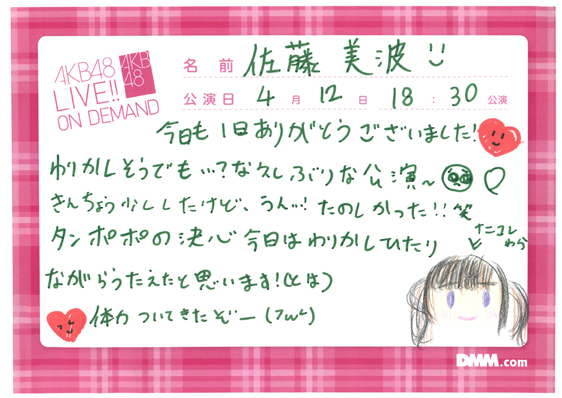 AKB48
LIVE!!
ON DEMAND
AKB
48
名前 佐藤美波
公演日 4月12日 18:30公演
今日も1日ありがとうございました!
わりかしそうでも…?な久しぶりな公演~
きんちょう少ししたけど、うん…!たのしかった!!笑
タンポポの決心今日はわりかしひたり
ながらうたえたと思います!(とは)
体力ついてきたぞー
ナニコレ
わら
DMM.com